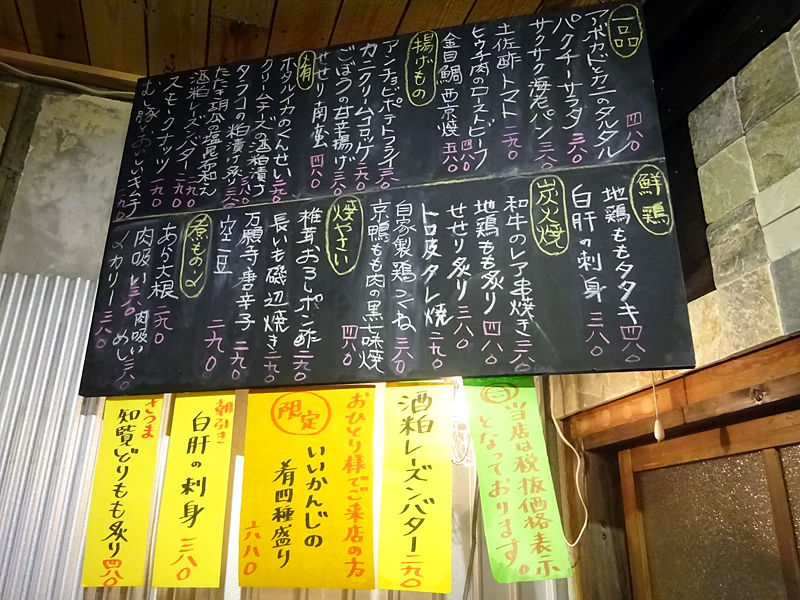 一品
アボカドとカニのタルタル 四八〇
パクチーサラダ 三八〇
サクサク海老パン 三八〇
土佐酢トマト 二九〇
ヒウチ肉のローストビーフ 四八〇
金目鯛西京焼 五八〇
揚げもの
アンチョビポテトフライ 三八〇
カニクリームコロッケ 二九〇
ごぼうの甘辛揚げ 三八〇
せせり南蛮 四八〇
肴
ホタルイカのくんせい 二九〇
クリームチーズの酒粕漬け 二九〇
タラコの粕漬け炙り 三八〇
たたき胡瓜の塩昆布和え
酒粕レーズンバター 二九〇
スモークナッツ 二九〇
むし豚とおいしいキムチ 二九〇
鮮鶏
地鶏ももタタキ 四八〇
白肝の刺身 三八〇
炭火焼
和牛のレア串焼き 三八〇
地鶏もも炙り 四八〇
せせり炙り 三八〇
トロ皮タレ焼 二九〇
自家製鶏つくね 三八〇
京鴨もも肉の黒七味焼 四八〇
焼やさい
椎茸おろしポン酢 二九〇
長いも磯辺焼き 二九〇
万願寺唐辛子 二九〇
空豆 二九〇
煮もの・〆
あら大根 二九〇
肉吸い 三八〇
肉吸いめし 三八〇
〆カリー 三八〇
当店は税抜価格表示
となっております。
酒粕レーズンバター 二九〇
おひとり様でご来店の方
限定
いいかんじの
肴四種盛り
六八〇
朝引き
白肝の刺身 三八〇
さつま
知覧どりもも炙り 四八〇